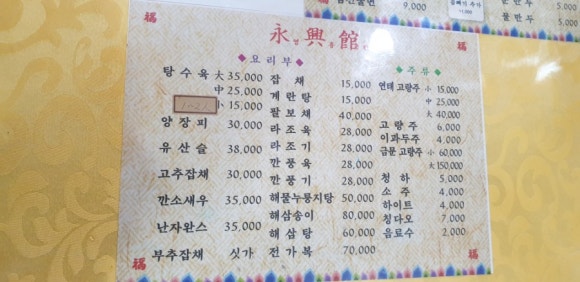 福
永영興흥館관
福
9,000
곱빼기 추가
만 두 5,000
물 만 두 5,000
◆ 요 리 부 ◆
탕 수 육 大 35,000
中 25,000
1~2人 小 15,000
양 장 피 30,000
유 산 슬 38,000
고추잡채 30,000
깐소새우 35,000
난자완스 35,000
부추잡채 싯가
잡 채 15,000
계 란 탕 15,000
팔 보 채 40,000
라 조 육 28,000
라 조 기 28,000
깐 풍 육 28,000
깐 풍 기 28,000
해물누룽지탕 50,000
해삼송이 80,000
해 삼 탕 60,000
전 가 복 70,000
◆ 주 류 ◆
연태 고량주 小 15,000
中 25,000
大 40,000
고 량 주 6,000
이과두주 4,000
금문 고량주 小 60,000
大 150,000
청 하 5,000
소 주 4,000
하이트 4,000
칭다오 7,000
음료수 2,000
福
福